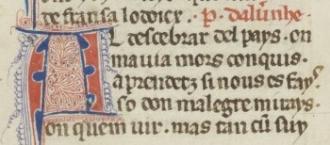 de fransa lodoicx. P. dalunhe.
Al descebrar del pays. on
mauia mors conquis.
aprendetz si nous es fays.
so don malegre murays.
on quem uir. mas tan cū suy